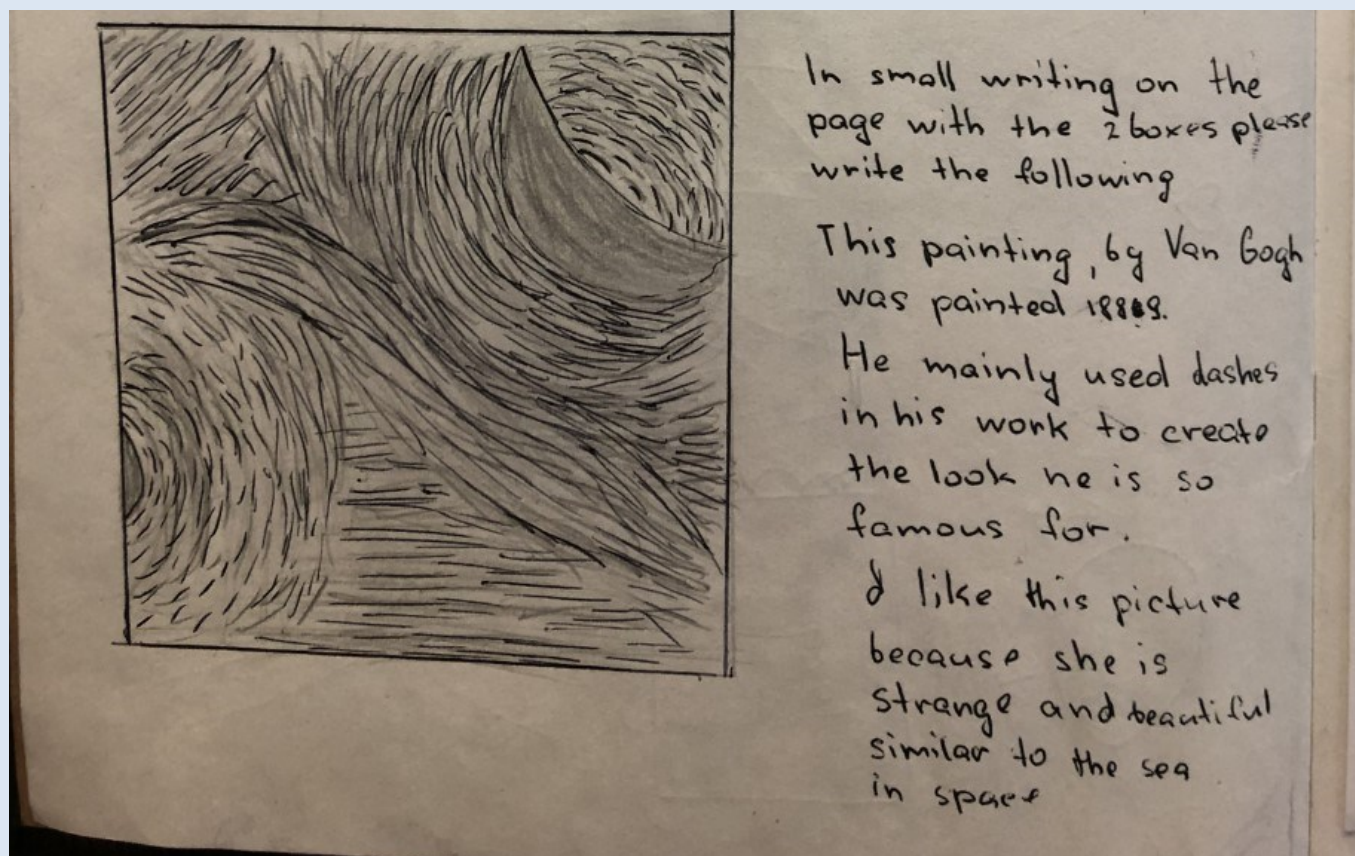 In small writing on the
page with the 2 boxes please
write the following
This painting, by Van Gogh
was painted 1889.
He mainly used dashes
in his work to create
the look he is so
famous for.
I like this picture
because she is
strange and beautiful
similar to the sea
in space